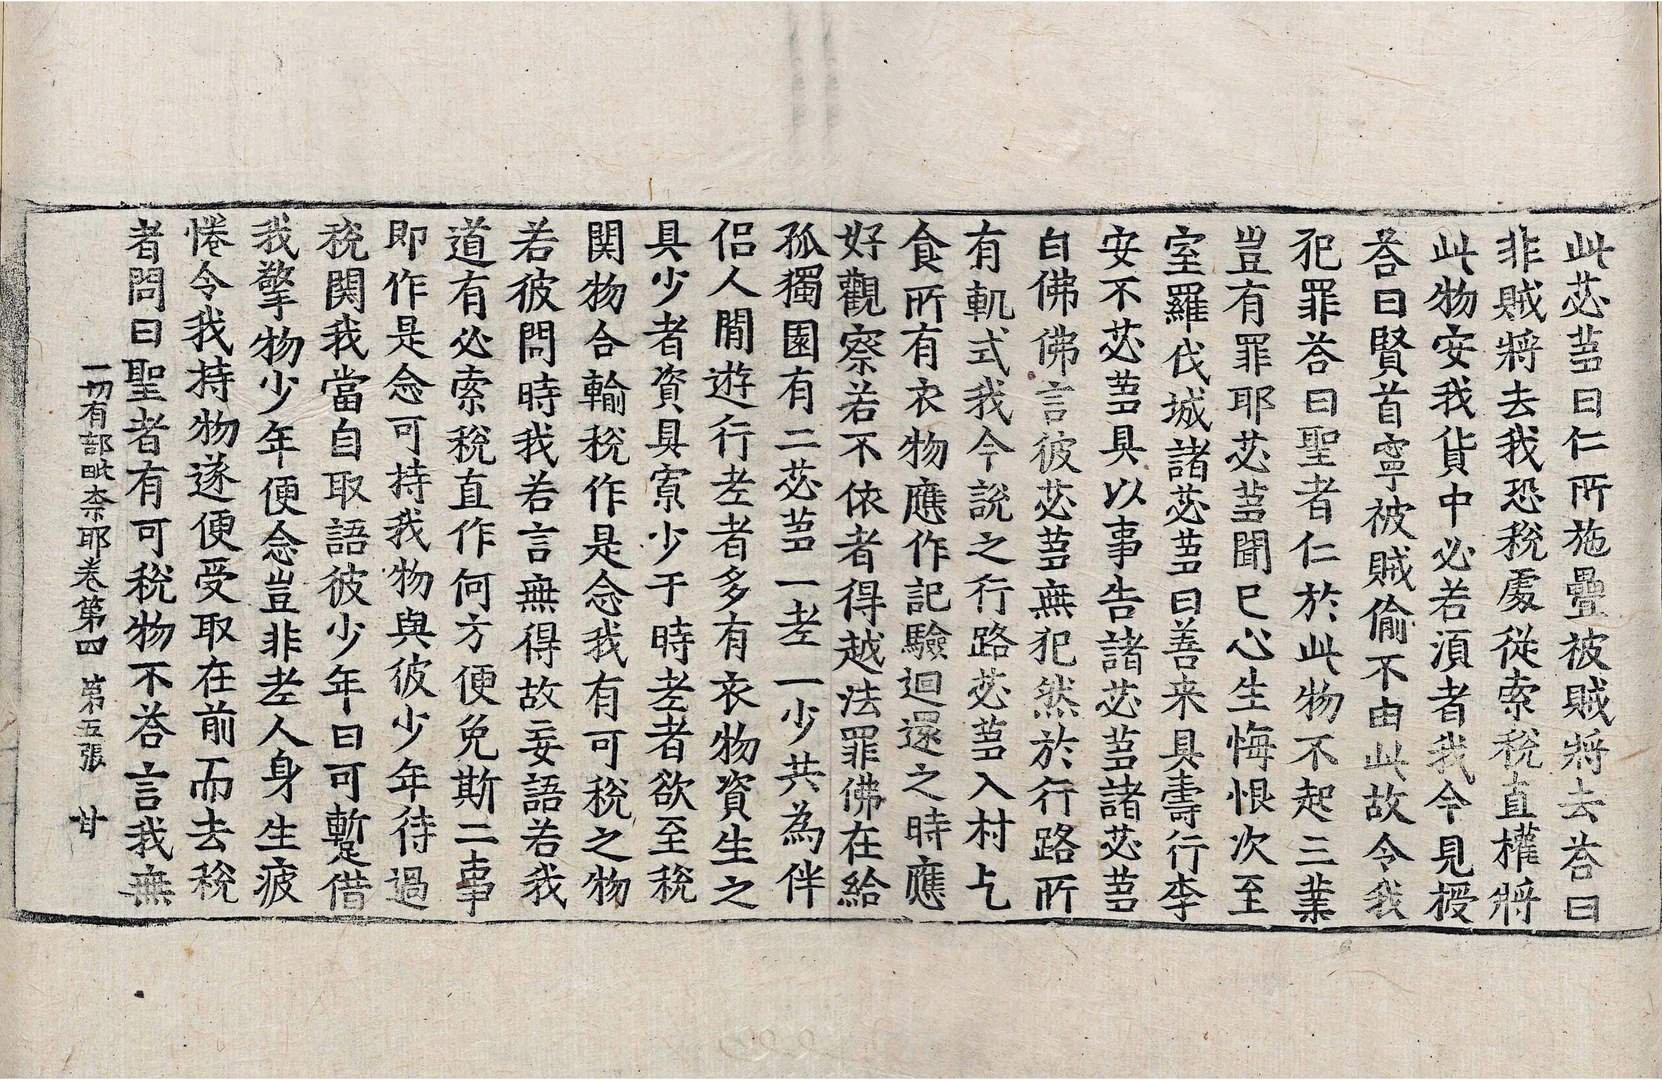 此苾蒭曰仁所施疊被賊將去荅曰
非賊將去我恐稅處從索稅直權將
此物安我貨中必若湏者我今見授
荅曰賢首寧被賊偷不由此故令我
犯罪荅曰聖者仁於此物不起三業
豈有罪耶苾蒭聞已心生悔恨次至
室羅伐城諸苾蒭曰善来具壽行李
安不苾蒭具以事告諸苾蒭諸苾蒭
白佛佛言彼苾蒭無犯然於行路所
有軌式我今說之行路苾蒭入村乞
食所有衣物應作記驗迴還之時應
好觀察若不依者得越法罪佛在給
孤獨園有二苾蒭一老一少共為伴
侣人間遊行老者多有衣物資生之
具少者資具寡少于時老者欲至稅
関物合輸稅作是念我有可稅之物
若彼問時我若言無得故妄語若我
道有必索稅直作何方便免斯二事
即作是念可持我物與彼少年待過
稅関我當自取語彼少年曰可暫借
我擎物少年便念豈非老人身生疲
惓令我持物遂便受取在前而去稅
者問曰聖者有可稅物不荅言我無
一切有部毗柰耶卷第四 第五張 甘